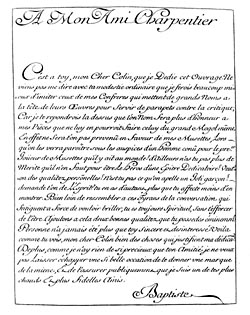 A Mon Ami Charpentier
C'est a toy, mon Cher Colin, que je Dedie cet Ouvrage Ne
viens pas me dire avec ta modestie ordinaire que je ferois beaucoup mi-
eux d'imiter ceux de mes Confreres qui mettent de grands Noms a
la tête de leurs Œuvres pour Servir de parapets contre la critique,
Car je te repondrois la dessus que ton Nom fera plus d'honneur a
mes Pieces que ne luy en pourroit faire celuy du grand Mogol même.
En effet ne sera t'on pas prevenu en Faveur de mes Musettes, Lors-
qu'on les verra paraitre sous les auspices d'un homme connû pour le pre.r
Joüeur de Musettes qu'il y ait au monde? d'ailleurs n'es tu pas plus de
Merite qu'il n'en faut pour être le Heros d'une Epitre Dedicatoire? Un
des qualités, personelles? N'est tu pas ce qu'on apelle un Joly garçon?
demande t'on de L'esprit? tu en as d'autant plus que tu affecte moins d'en
montrer. Bien loin de ressembler a ces tyrans de la conversation, qui
fatiguent a force de vouloir briller, tu es toujours Spirituel, Sans t'efforcer
de l'être. Ajoutons a cela deux bonnes qualités, que tu possede
Personne n'a jamais eté plus que toy Sincere et desinteressé. Voila
comme tu vois, mon cher Colin bien des choses qui justifient ma dedicace
De plus, comme je n'ay rien de si precieux que ton Amitié, je ne veux
pas Laisser échapper une Si belle occasion de te donner une marque
de la mienne, et de t'assurer publiquement que je Suis un de tes plus
chauds et plus fidelles Amis.
Baptiste